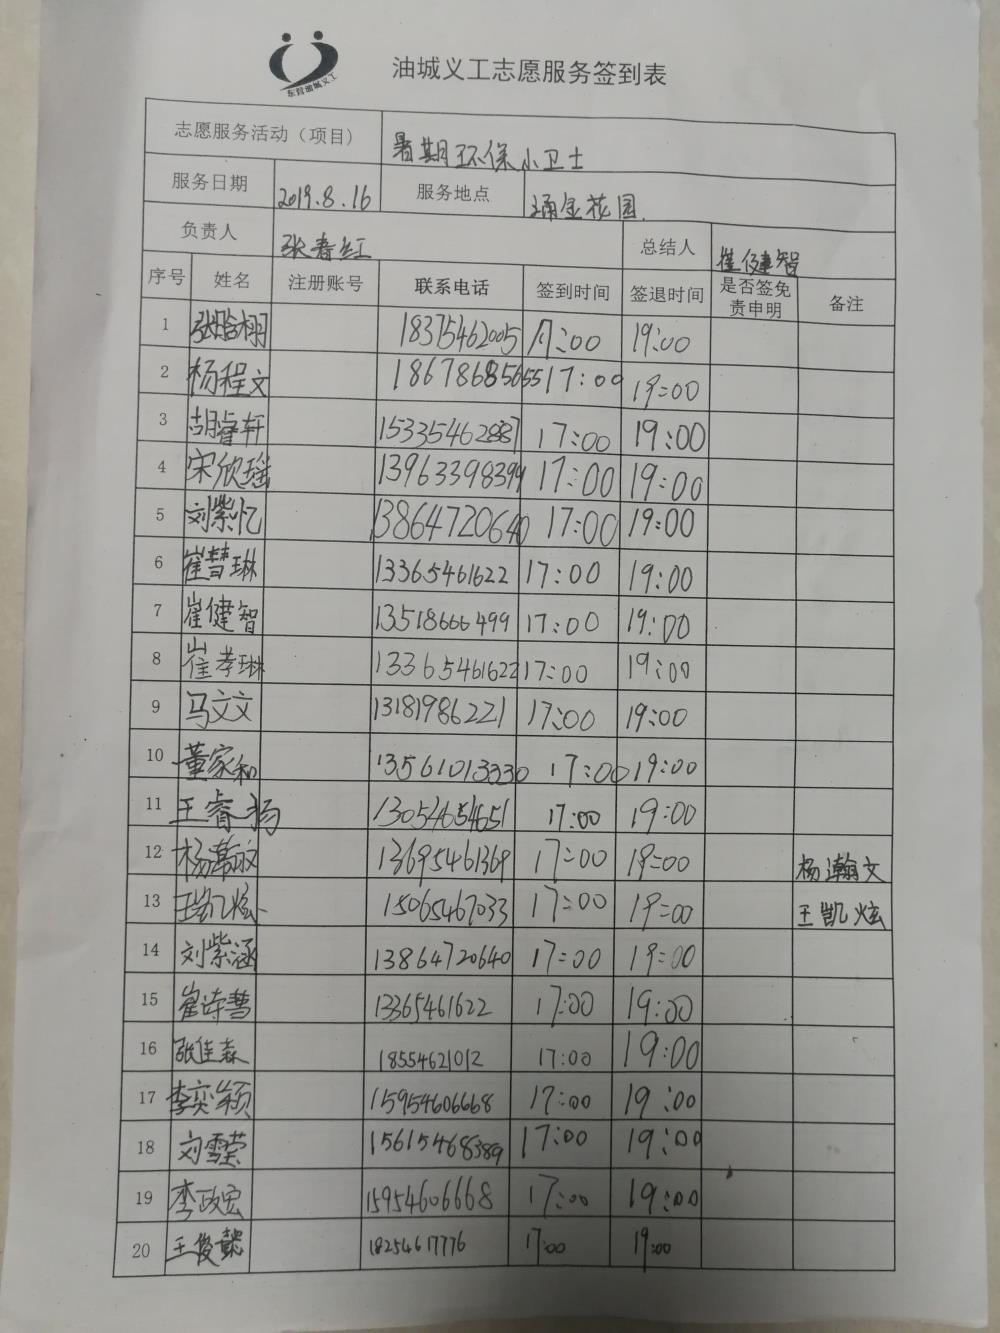 东营油城义工
油城义工志愿服务签到表
志愿服务活动（项目） 暑期环保小卫士
服务日期 2019.8.16 服务地点 通金花园.
负责人 张春红 总结人 崔健智
序号 姓名 注册账号 联系电话 签到时间 签退时间 是否签免责申明 备注
1 18375462005 17:00 19:00
2 杨程文 18678685655 17:00 19:00
3 胡睿轩 15335462887 17:00 19:00
4 宋欣瑶 13963398399 17:00 19:00
5 刘紫忆 13864720640 17:00 19:00
6 崔慧琳 13365461622 17:00 19:00
7 崔健智 13518666499 17:00 19:00
8 崔孝琳 13365461622 17:00 19:00
9 马文文 13181986221 17:00 19:00
10 董家和 13561013330 17:00 19:00
11 王睿扬 13054654651 17:00 19:00
12 杨瀚文 13695461369 17:00 19:00 杨瀚文
13 王凯炫 15065467033 17:00 19:00 王凯炫
14 刘紫涵 13864720640 17:00 19:00
15 崔诗慧 13365461622 17:00 19:00
16 张佳森 18554621012 17:00 19:00
17 李奕颖 15954606668 17:00 19:00
18 刘雪莹 15615468389 17:00 19:00
19 李政宏 15954606668 17:00 19:00
20 王俊懿 18254617776 17:00 19:00